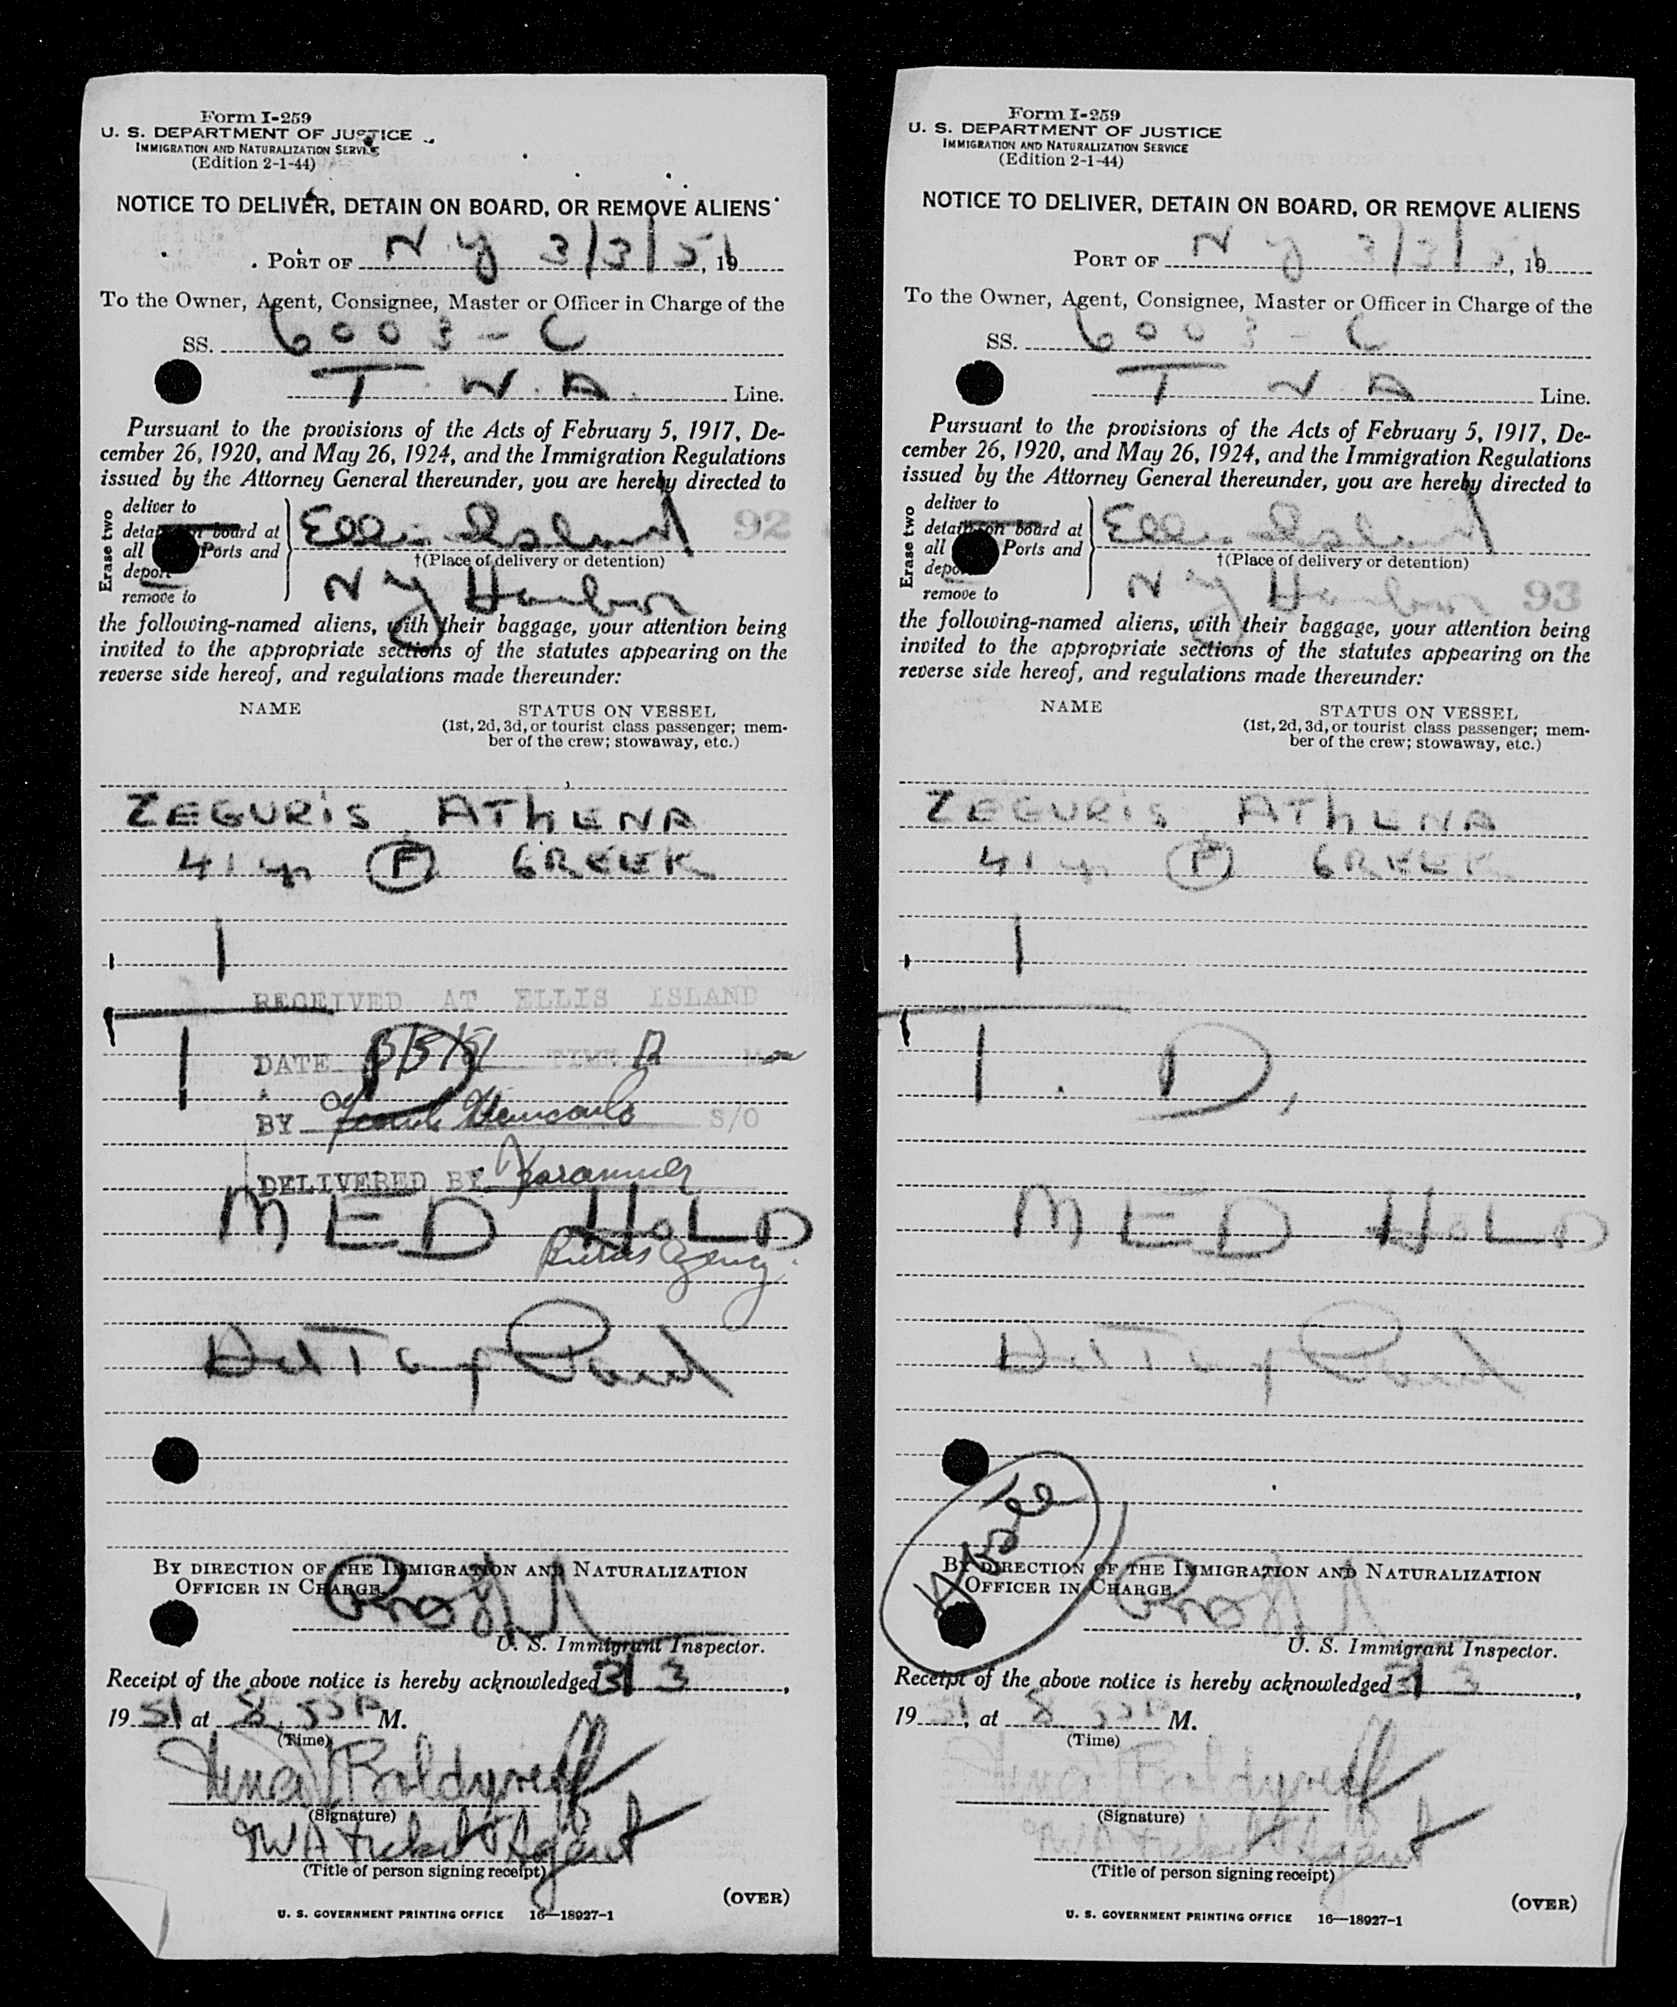 Form I-259
U. S. DEPARTMENT OF JUSTICE
IMMIGRATION AND NATURALIZATION SERVICE
(Edition 2-1-44)
NOTICE TO DELIVER, DETAIN ON BOARD, OR REMOVE ALIENS
PORT OF N Y 3/3/51, 19
To the Owner, Agent, Consignee, Master or Officer in Charge of the
SS. 6003-C
T.W.A. Line.
Pursuant to the provisions of the Acts of February 5, 1917, De-
cember 26, 1920, and May 26, 1924, and the Immigration Regulations
issued by the Attorney General thereunder, you are hereby directed to
Erase two
deliver to
detain on board at
all Ports and
deport
remove to
Ellis Island 92
†(Place of delivery or detention)
N Y Harbor
the following-named aliens, with their baggage, your attention being
invited to the appropriate sections of the statutes appearing on the
reverse side hereof, and regulations made thereunder:
NAME STATUS ON VESSEL
(1st, 2d, 3d, or tourist class passenger; mem-
ber of the crew; stowaway, etc.)
ZEGURIS ATHENA
41 yr F GREEK
1
RECEIVED AT ELLIS ISLAND
T. D.
DATE 3/3/51 TIME M
BY S/O
DELIVERED BY
MED HOLD
Burns Agency
Det Tag Pound
BY DIRECTION OF THE IMMIGRATION AND NATURALIZATION
OFFICER IN CHARGE.
U. S. Immigrant Inspector.
Receipt of the above notice is hereby acknowledged 3/3,
19 51 at 8 55 P M.
(Time)
Boldyreff
(Signature)
TWA Ticket Agent
(Title of person signing receipt)
(OVER)
U. S. GOVERNMENT PRINTING OFFICE 16—18927-1
Form I-259
U. S. DEPARTMENT OF JUSTICE
IMMIGRATION AND NATURALIZATION SERVICE
(Edition 2-1-44)
NOTICE TO DELIVER, DETAIN ON BOARD, OR REMOVE ALIENS
PORT OF N Y 3/3/51, 19
To the Owner, Agent, Consignee, Master or Officer in Charge of the
SS. 6003-C
T W A Line.
Pursuant to the provisions of the Acts of February 5, 1917, De-
cember 26, 1920, and May 26, 1924, and the Immigration Regulations
issued by the Attorney General thereunder, you are hereby directed to
Erase two
deliver to
detain on board at
all Ports and
deport
remove to
Ellis Island
†(Place of delivery or detention)
N Y Harbor 93
the following-named aliens, with their baggage, your attention being
invited to the appropriate sections of the statutes appearing on the
reverse side hereof, and regulations made thereunder:
NAME STATUS ON VESSEL
(1st, 2d, 3d, or tourist class passenger; mem-
ber of the crew; stowaway, etc.)
ZEGURIS ATHENA
41 yr F GREEK
1
T. D.
MED HOLD
Det Tag Pound
BY DIRECTION OF THE IMMIGRATION AND NATURALIZATION
OFFICER IN CHARGE.
U. S. Immigrant Inspector.
Receipt of the above notice is hereby acknowledged 3/3,
19 51, at 8 55 P M.
(Time)
Boldyreff
(Signature)
TWA Ticket Agent
(Title of person signing receipt)
(OVER)
U. S. GOVERNMENT PRINTING OFFICE 16—18927-1